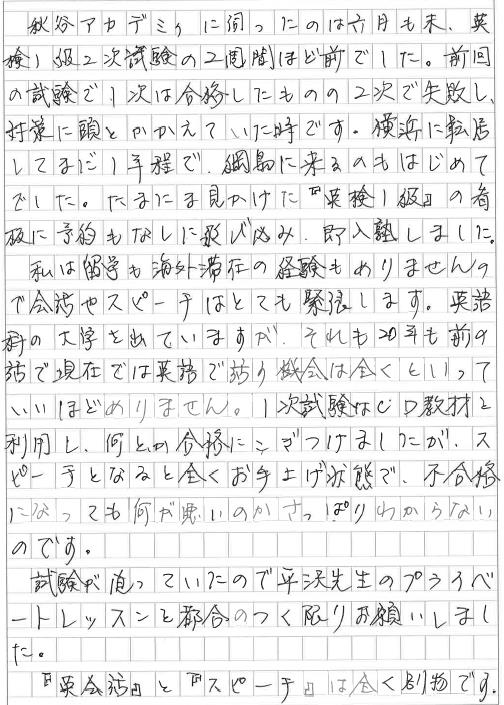 秋谷アカデミィに伺ったのは六月も末、英
検1級2次試験の2週間ほど前でした。前回
の試験で1次は合格したものの2次で失敗し、
対策に頭をかかえていた時です。横浜に転居
してまだ1年程で、綱島に来るのもはじめて
でした。たまたま見かけた『英検1級』の看
板に予約もなしに飛び込み、即入塾しました。
私は留学も海外滞在の経験もありませんの
で会話やスピーチはとても緊張します。英語
科の大学を出ていますが、それも20年も前の
話で現在では英語で話す機会は全くといって
いいほどありません。1次試験はCD教材を
利用し、何とか合格にこぎつけましたが、ス
ピーチとなると全くお手上げ状態で、不合格
になっても何が悪いのかさっぱりわからない
のです。
試験が迫っていたので平沢先生のプライベ
ートレッスンを都合のつく限りお願いしまし
た。
『英会話』と『スピーチ』は全く別物です。